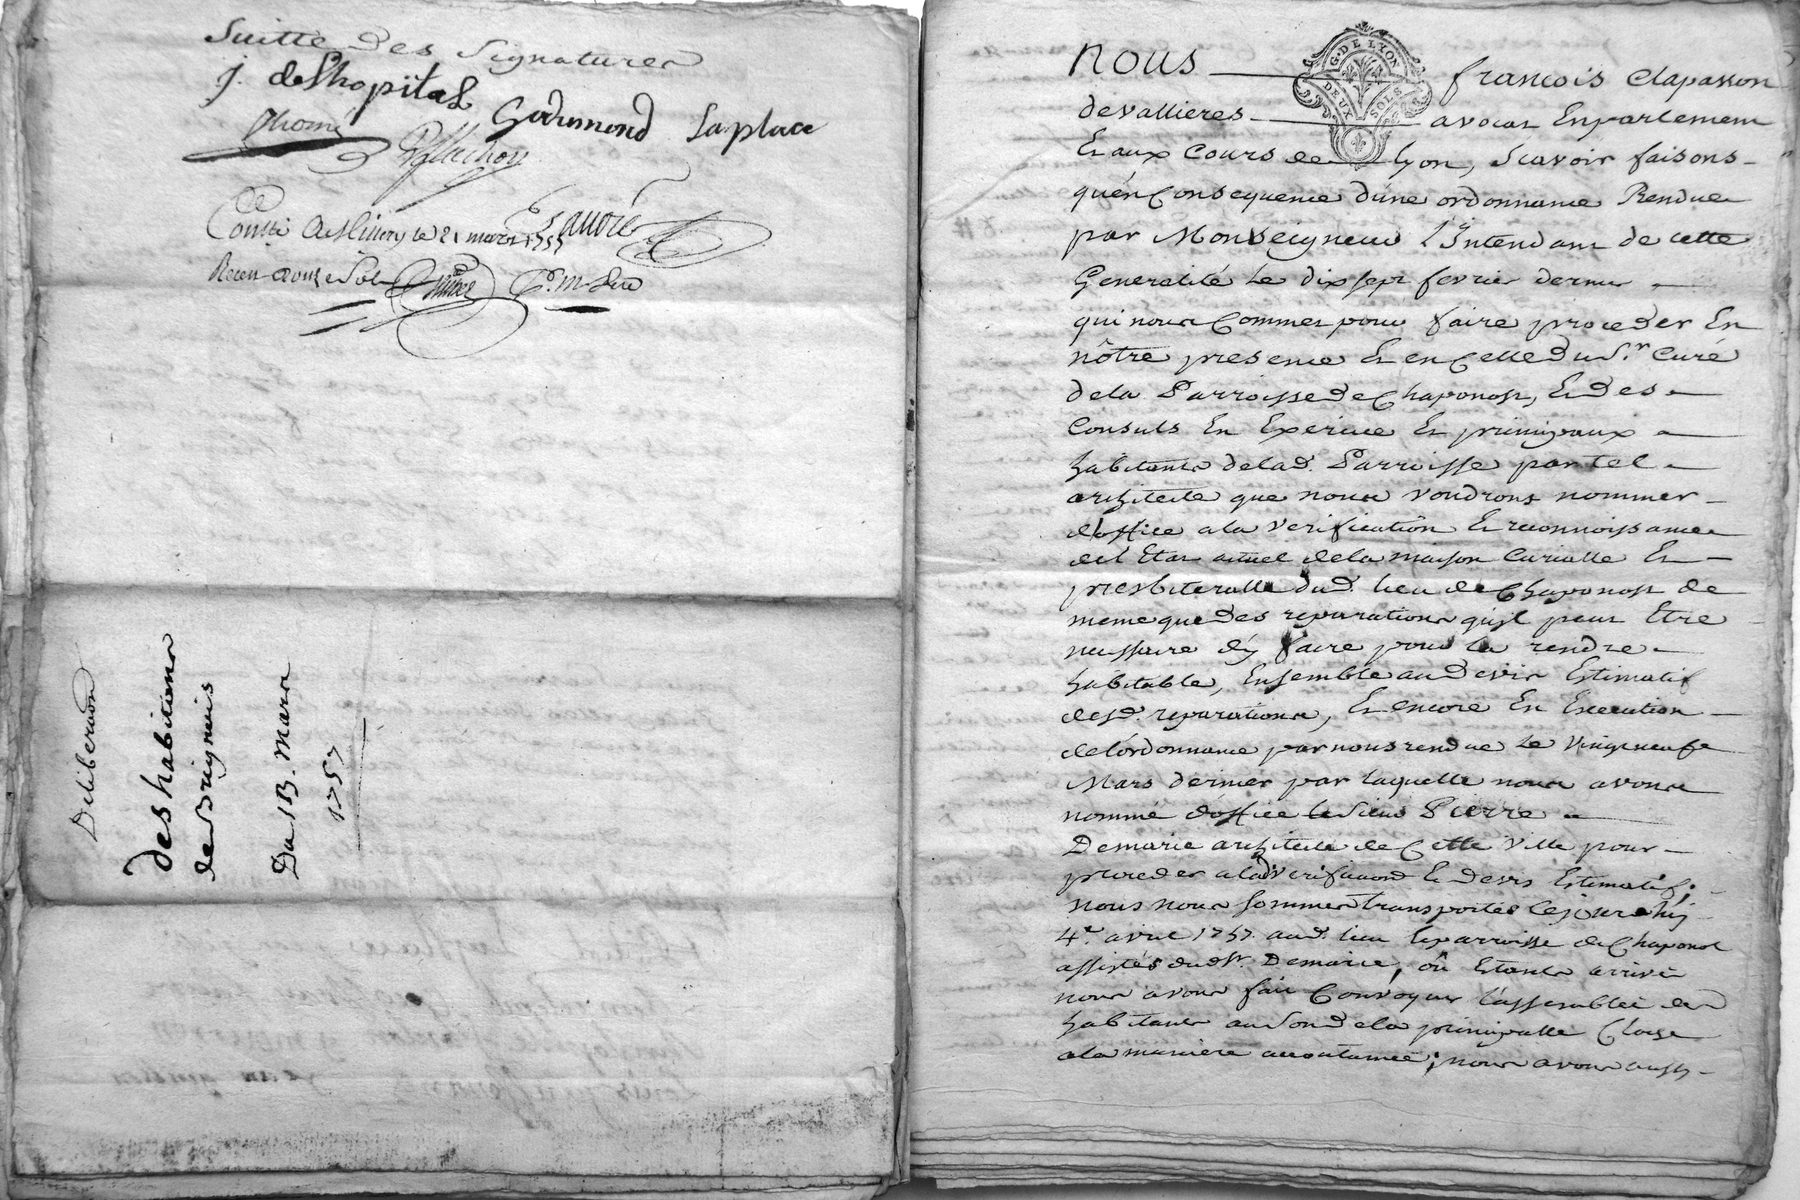 Suitte des Signatures
j. deLhopital
Godemond Laplace
thomé
Conllé A Millery le 21 mars 1757
Recu douze Sols
Deliberaon
des habitans
de Brignais
Du 13. Mars
1757
G. DE LYON
DEUX SOLS
nous françois Clapasson
devallieres avocat Enparlement
Et aux Cours de Lyon, Scavoir faisons
qu'en Consequence d'une ordonnance Rendue
par Monseigneur L'Intendant de cette
Generalité Le dix sept fevrier dernier
qui nous Commet pour faire proceder En
nôtre presence Et en Celle du Sr. Curé
dela Parroisse de Chaponost, Et des
Consuls En Exercice Et principaux
habitants delad. Parroisse par tel
architecte que nous voudrons nommer
d'office a la verification Et reconnoissance
del'Etat actuel de la maison Curialle Et
presbiteralle dud. lieu de Chaponost de
meme que des reparations qu'il peut Etre
necessaire d'y faire pour la rendre
habitable, Ensemble au devis Estimatif
desd. reparations, Et encore En Execution
de l'ordonnance par nous rendue Le vingt neuf
Mars dernier par laquelle nous avons
nommé d'office le Sieur Pierre
Demarie architecte de Cette ville pour
proceder a lad verificaond Et devis Estimatif;
nous nous Sommes transportés Cejourdhuy
4e. avril 1757. aud. lieu Et parroisse de Chaponost
assistés dudSr. Demarie, où Etants arrivés
nous avons fait Convoquer l'assemblée des
habitants au Son dela principalle Cloche
a la maniere accoutumée; nous avons aussy